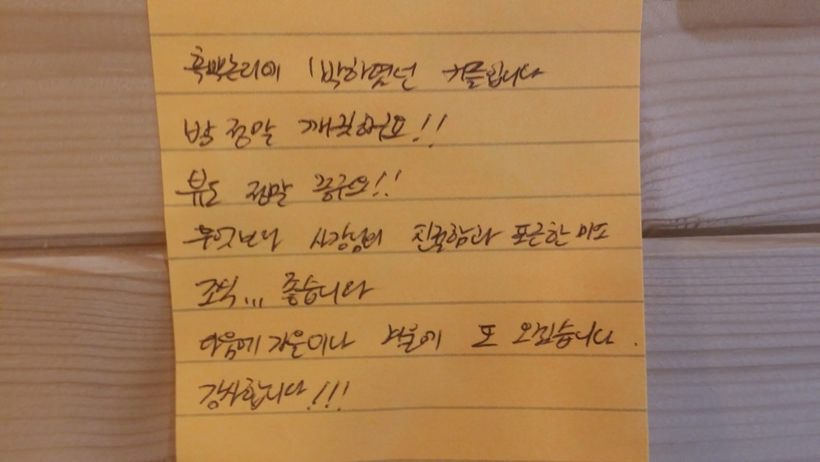 흑백논리에 1박하였던 커플입니다
방 정말 깨끗해요!!
뷰도 정말 좋구요!!
무엇보다 사장님의 친절함과 포근한 미소
조식... 좋습니다
다음에 가을이나 겨울에 또 오겠습니다.
감사합니다!!!